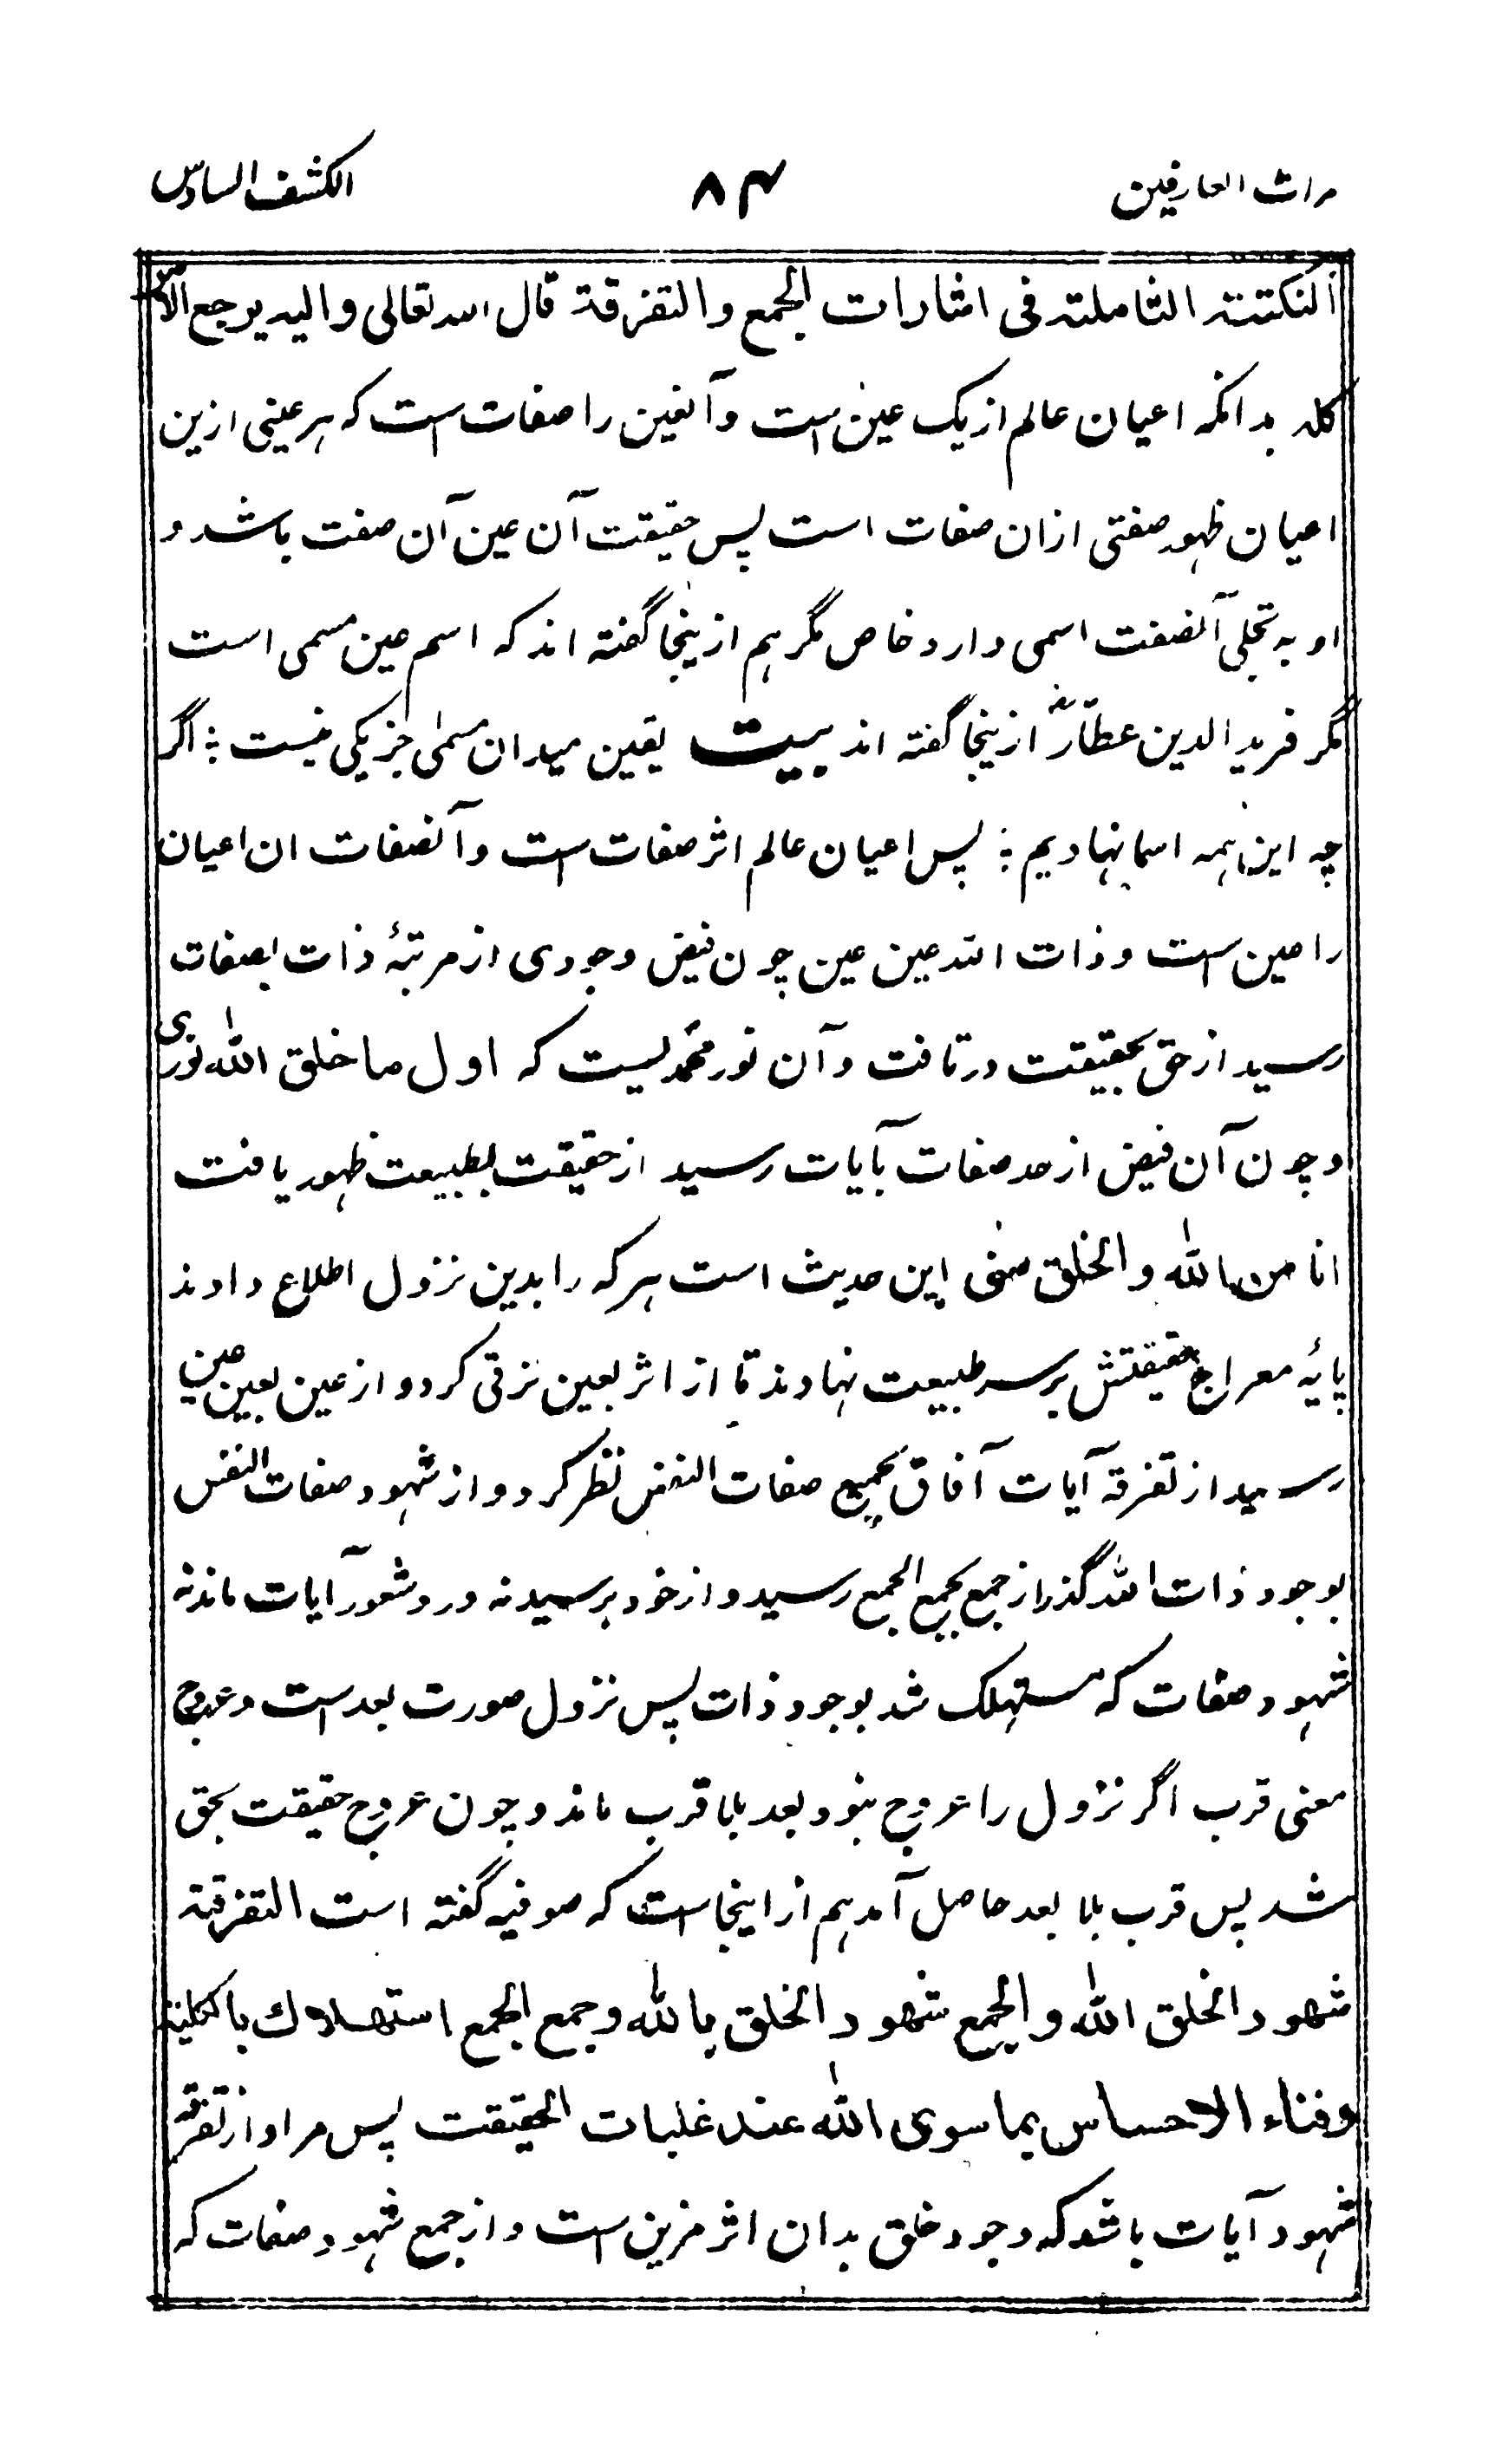 مراٰت العارفین ۸۴ الکشف السادس
النکتة الشاملة فی اشارات الجمع والتفرقة قال الله تعالی والیه یرجع الامر
کله بدانکه اعیان عالم از یک عین است وآنعین را صفات است که هر عینی ازین
اعیان ظهور صفتی ازان صفات است پس حقیقت آن عین آن صفت باشد و
او به تجلی آنصفت اسمی دارد خاص مگر هم ازینجا گفته اند که اسم عین مسمی است
مگر فرید الدین عطّارؒ ازینجا گفته اند بیت یقین میدان مسمیٰ جز یکی نیست ؛ اگر
چه این همه اسما نهادیم ؛ پس اعیان عالم اثر صفات است وآنصفات ان اعیان
را عین است و ذات الله عین عین چون فیض وجودی از مرتبهٔ ذات بصفات
رسید از حق بحقیقت درتافت وآن نور محمدیست که اول ما خلق الله نوری
و چون آن فیض از حد صفات بآیات رسید از حقیقت بطبیعت ظهور یافت
انا من الله والخلق منی این حدیث است هر که را بدین نزول اطلاع دادند
پایهٔ معراج حقیقتش بر سر طبیعت نهادند تا از اثر بعین ترقی کرد و از عین بعین عین
رسید از تفرقهٔ آیات آفاق بجمع صفات النفس نظر کرد و از شهود صفات النفس
بوجود ذات الله گذر از جمع بجمع الجمع رسید و از خود برسید نه درو شعور آیات ماند نه
شهود صفات که مستهلک شد بوجود ذات پس نزول صورت بعد است و عروج
معنی قرب اگر نزول را عروج نبود بعد بلا قرب ماند و چون عروج حقیقت بحق
شد پس قرب بلا بعد حاصل آمد هم از اینجاست که صوفیه گفته است التفرقة
شهود الخلق الله والجمع شهود الخلق بالله وجمع الجمع استهلاك بالکلیة
وفناء الاحساس بما سوی الله عند غلبات الحقیقت پس مراد از تفرقه
شهود آیات باشد که وجود خلق بدان اثر مزین است و از جمع شهود صفات که